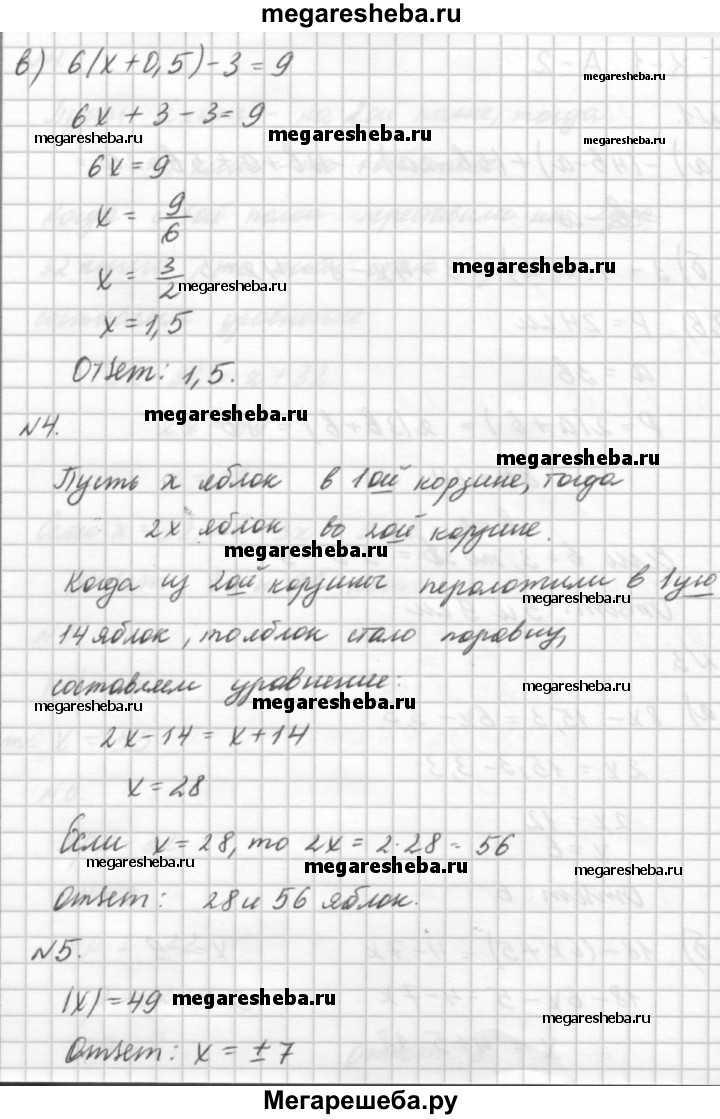 megaresheba.ru
в) 6(x+0,5)-3=9
megaresheba.ru
6x+3-3=9
megaresheba.ru
megaresheba.ru
megaresheba.ru
6x=9
x = 9/6
megaresheba.ru
x = 3/2
megaresheba.ru
x=1,5
Ответ: 1,5.
megaresheba.ru
№4.
megaresheba.ru
Пусть x яблок в 1ой корзине, тогда
2x яблок во 2ой корзине.
megaresheba.ru
megaresheba.ru
Когда из 2ой корзины пероложили в 1ую
14 яблок, то яблок стало поровну,
составляем уравнение:
megaresheba.ru
megaresheba.ru
megaresheba.ru
2x-14=x+14
x=28
Если x=28, то 2x=2·28=56
megaresheba.ru
megaresheba.ru
megaresheba.ru
Ответ: 28 и 56 яблок.
№5.
|x|=49
megaresheba.ru
megaresheba.ru
Ответ: x=±7
Мегарешеба.ру